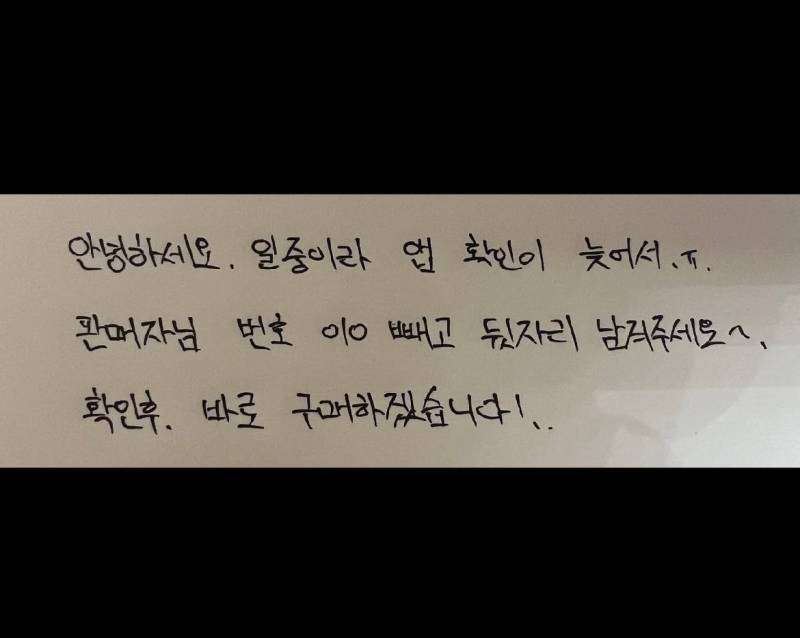 안녕하세요. 일중이라 앱 확인이 늦어서.ㅠ.
판매자님 번호 010 빼고 뒷자리 남겨주세요~.
확인후. 바로 구매하겠습니다!..